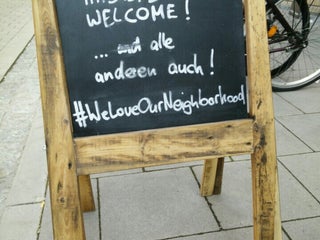 WELCOME!
... und alle
anderen auch!
#WeLoveOurNeighborhood